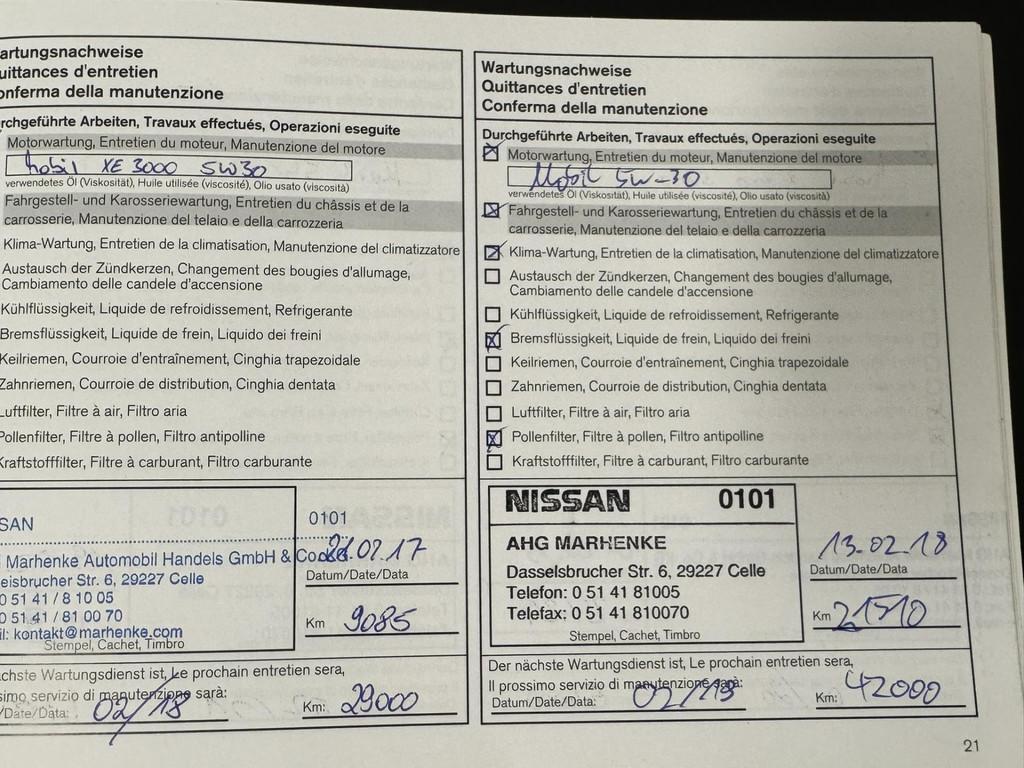 artungsnachweise
uittances d'entretien
onferma della manutenzione
rchgeführte Arbeiten, Travaux effectués, Operazioni eseguite
Motorwartung, Entretien du moteur, Manutenzione del motore
Mobil XE 3000 5W30
verwendetes Öl (Viskosität), Huile utilisée (viscosité), Olio usato (viscosità)
Fahrgestell- und Karosseriewartung, Entretien du châssis et de la
carrosserie, Manutenzione del telaio e della carrozzeria
Klima-Wartung, Entretien de la climatisation, Manutenzione del climatizzatore
Austausch der Zündkerzen, Changement des bougies d'allumage,
Cambiamento delle candele d'accensione
Kühlflüssigkeit, Liquide de refroidissement, Refrigerante
Bremsflüssigkeit, Liquide de frein, Liquido dei freini
Keilriemen, Courroie d'entraînement, Cinghia trapezoidale
Zahnriemen, Courroie de distribution, Cinghia dentata
Luftfilter, Filtre à air, Filtro aria
Pollenfilter, Filtre à pollen, Filtro antipolline
Kraftstofffilter, Filtre à carburant, Filtro carburante
SAN 0101
Marhenke Automobil Handels GmbH & Co.KG
elsbrucher Str. 6, 29227 Celle
0 51 41 / 8 10 05
0 51 41 / 81 00 70
il: kontakt@marhenke.com
Stempel, Cachet, Timbro
21.02.17
Datum/Date/Data
Km 9085
ächste Wartungsdienst ist, Le prochain entretien sera,
simo servizio di manutenzione sarà:
/Date/Data: 02/18 Km: 29000
Wartungsnachweise
Quittances d'entretien
Conferma della manutenzione
Durchgeführte Arbeiten, Travaux effectués, Operazioni eseguite
Motorwartung, Entretien du moteur, Manutenzione del motore
Mobil 5W-30
verwendetes Öl (Viskosität), Huile utilisée (viscosité), Olio usato (viscosità)
Fahrgestell- und Karosseriewartung, Entretien du châssis et de la
carrosserie, Manutenzione del telaio e della carrozzeria
Klima-Wartung, Entretien de la climatisation, Manutenzione del climatizzatore
Austausch der Zündkerzen, Changement des bougies d'allumage,
Cambiamento delle candele d'accensione
Kühlflüssigkeit, Liquide de refroidissement, Refrigerante
Bremsflüssigkeit, Liquide de frein, Liquido dei freini
Keilriemen, Courroie d'entraînement, Cinghia trapezoidale
Zahnriemen, Courroie de distribution, Cinghia dentata
Luftfilter, Filtre à air, Filtro aria
Pollenfilter, Filtre à pollen, Filtro antipolline
Kraftstofffilter, Filtre à carburant, Filtro carburante
NISSAN 0101
AHG MARHENKE
Dasselsbrucher Str. 6, 29227 Celle
Telefon: 0 51 41 81005
Telefax: 0 51 41 810070
Stempel, Cachet, Timbro
13.02.18
Datum/Date/Data
Km 21510
Der nächste Wartungsdienst ist, Le prochain entretien sera,
Il prossimo servizio di manutenzione sarà:
Datum/Date/Data: 02/19 Km: 42000
21